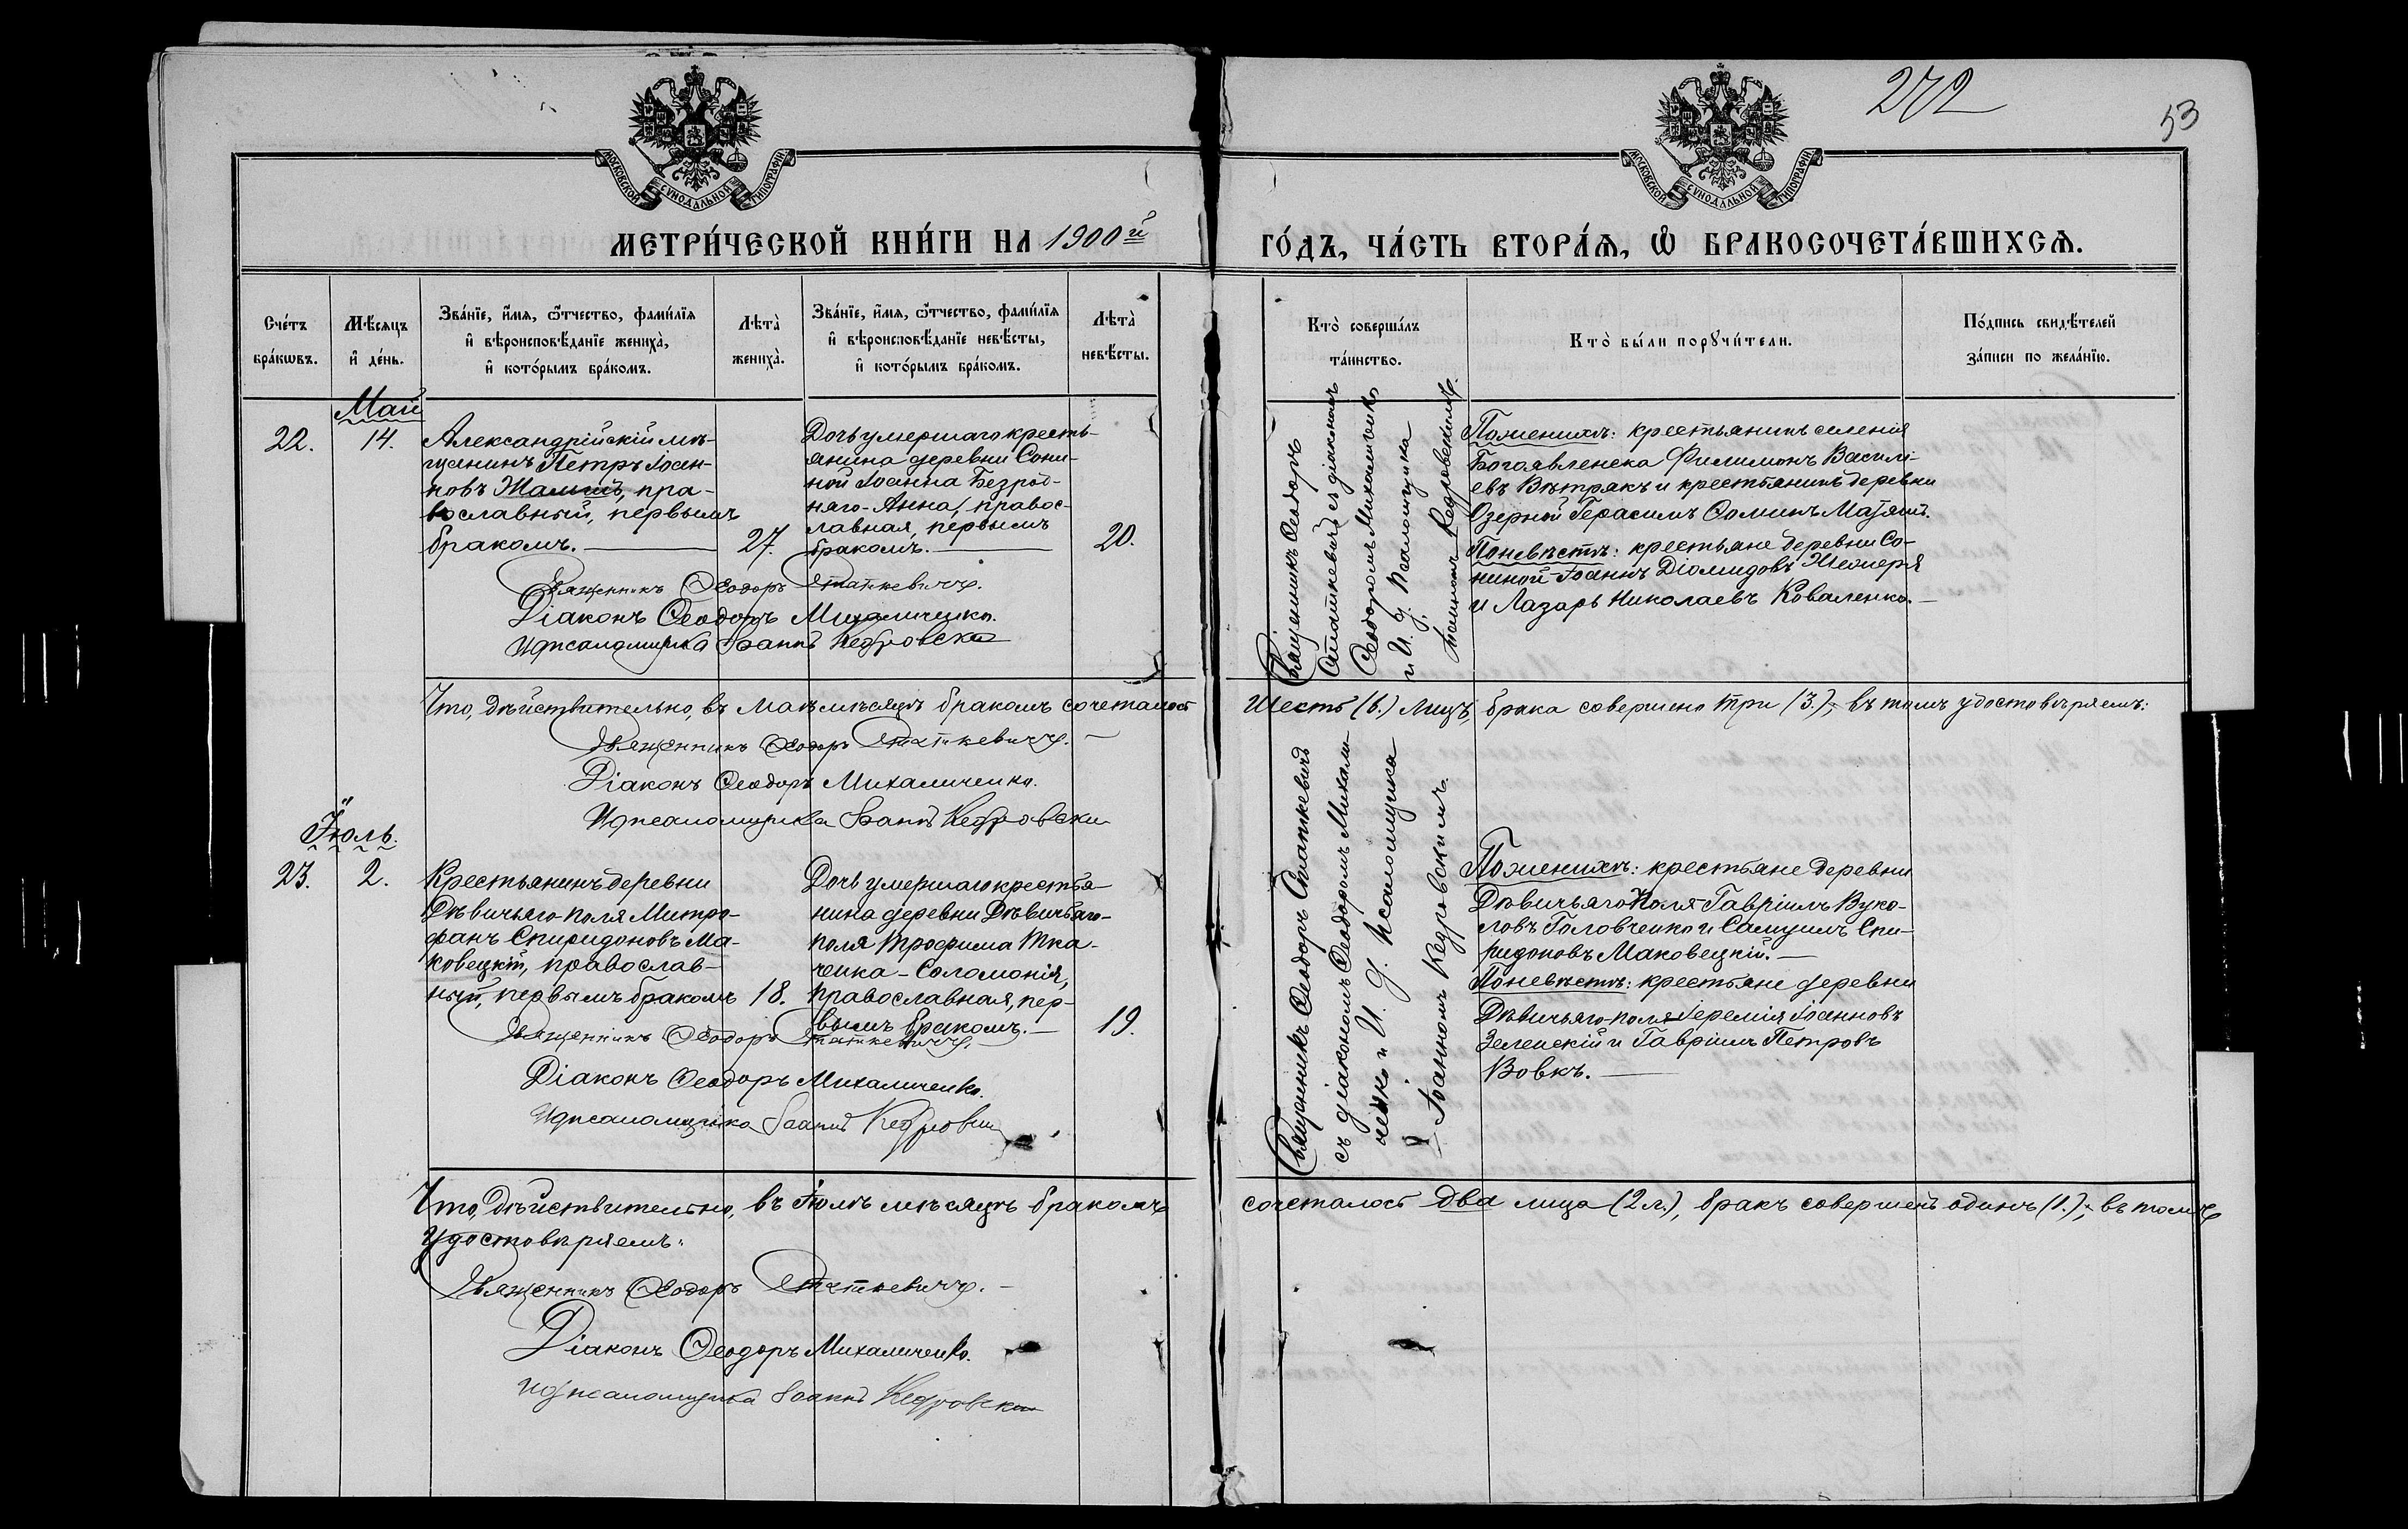 272
53
МОСКОВСКОЙ СѴНОДАЛЬНОЙ ТИПОГРАФІИ
МОСКОВСКОЙ СѴНОДАЛЬНОЙ ТИПОГРАФІИ
МЕТРИ́ЧЕСКОЙ КНИ́ГИ НА 1900й
ГО́ДЪ, ЧА́СТЬ ВТОРА́Ѧ, Ѽ БРАКОСОЧЕТА́ВШИХСѦ.
Сче́тъ
бра́кѡвъ.
Мѣ́сяцъ
и҆ де́нь.
Зва́нїе, и҆́мѧ, ѻ҆́тчество, фами́лїѧ
и҆ вѣроисповѣ́данїе жениха̀,
и҆ кото́рымъ бра́комъ.
Лѣта̀
жениха̀.
Зва́нїе, и҆́мѧ, ѻ҆́тчество, фами́лїѧ
и҆ вѣроисповѣ́данїе невѣ́сты,
и҆ кото́рымъ бра́комъ.
Лѣта̀
невѣ́сты.
Кто̀ соверша́лъ
та́инство.
Кто̀ бы́ли порꙋчи́тели.
По́дпись свидѣ́телей
за́писи по жела́нїю.
Май
22.
14.
Александрійскій мѣ-
щанинъ Петръ Іоан-
новъ Малый, пра-
вославный, первымъ
бракомъ.
27.
Дочь умершаго кресть-
янина деревни Сони-
ной Іоанна Безрод-
няго - Анна, правос-
лавная, первымъ
бракомъ.
20.
Священникъ Ѳеодоръ
Статкевичъ съ діакономъ
Ѳеодоромъ Михаличенко
и И. д. Псаломщика
Іоанномъ Кедровскимъ.
По женихѣ: крестьянинъ селенія
Богоявленска Филимонъ Василі-
евъ Вѣтрякъ и крестьянинъ деревни
Озерной Герасимъ Ѳоминъ
По невѣстѣ: крестьяне деревни Со-
ниной Іоаннъ Діомидовъ
и Лазарь Николаевъ Коваленко.
Священникъ Ѳеодоръ Статкевичъ.
Діаконъ Ѳеодоръ Михаличенко.
И д псаломщика Іоаннъ Кедровскій
Что, дѣйствительно, въ Маѣ мѣсяцѣ бракомъ сочеталось
Шесть (6.) лицъ, брака совершено три (3.), въ томъ удостовѣряемъ:
Священникъ Ѳеодоръ Статкевичъ.
Діаконъ Ѳеодоръ Михаличенко.
И д псаломщика Іоаннъ Кедровскій
Іюль.
23.
2.
Крестьянинъ деревни
Дѣвичьяго-поля Митро-
фанъ Спиридоновъ Ма-
ковецкій, православ-
ный, первымъ бракомъ
18.
Дочь умершаго крестья-
нина деревни Дѣвичьяго-
поля Трофима Тка-
ченка - Соломонія,
православная, пер-
вымъ бракомъ.
19.
Священникъ Ѳеодоръ Статкевичъ
съ діакономъ Ѳеодоромъ Михали-
ченко и И. д. Псаломщика
Іоанномъ Кедровскимъ.
По женихѣ: крестьяне деревни
Дѣвичьяго Поля Гавріилъ Вуко-
ловъ Головченко и Самуилъ Спи-
ридоновъ Маковецкій.
По невѣстѣ: крестьяне деревни
Дѣвичьяго-поля Іеремія Іоанновъ
Зеленскій и Гавріилъ Петровъ
Вовкъ.
Священникъ Ѳеодоръ Статкевичъ.
Діаконъ Ѳеодоръ Михаличенко.
И д псаломщика Іоаннъ Кедровскій
Что, дѣйствительно, въ Іюлѣ мѣсяцѣ бракомъ
сочеталось два лица (2 л.), бракъ совершенъ одинъ (1.), въ томъ
удостовѣряемъ:
Священникъ Ѳеодоръ Статкевичъ.
Діаконъ Ѳеодоръ Михаличенко.
И д псаломщика Іоаннъ Кедровскій